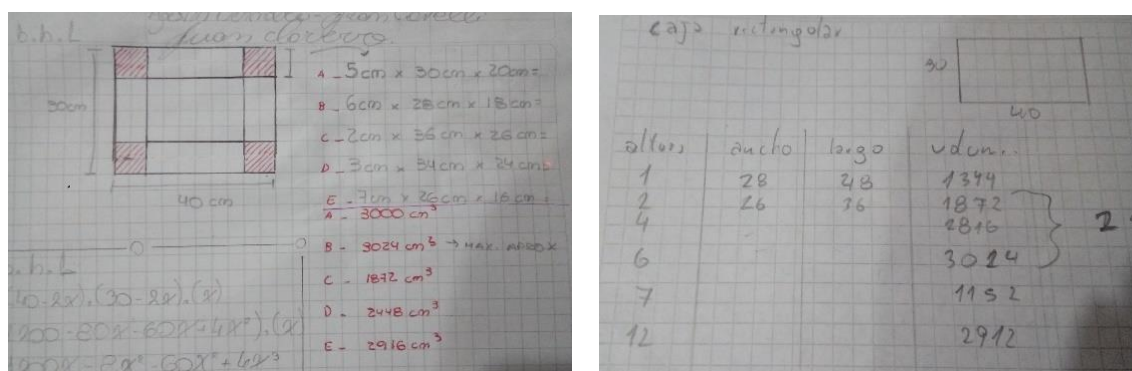 b.h.L
Juan
30cm
40 cm
A - 5cm x 30cm x 20cm =
B - 6cm x 28cm x 18cm =
C - 2cm x 36cm x 26cm =
D - 3cm x 34cm x 24cm =
E - 7cm x 26cm x 16cm =
A - 3000 cm³
B - 3024 cm³ → MAX. APROX
C - 1872 cm³
D - 2448 cm³
E - 2916 cm³
b.h.L
(40-2x).(30-2x).(x)
caja rectangular
30
40
ancho largo
1 28 48 1344
2 26 36 1872
4 2816
6 3024
7 1152
12 2912
2